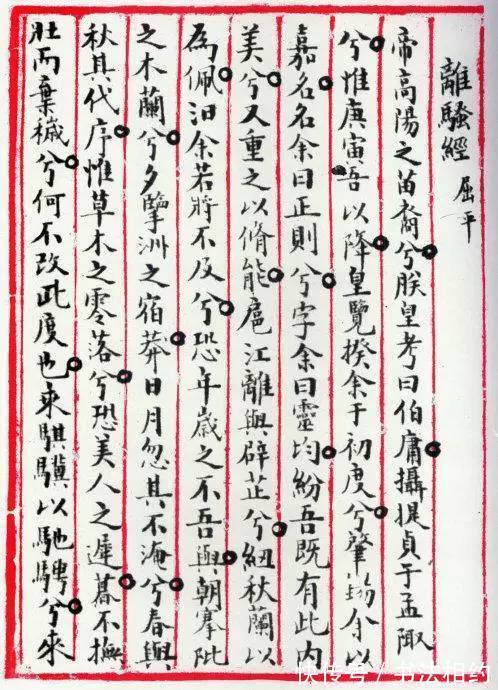 離騷經 屈平
帝高陽之苗裔兮朕皇考曰伯庸攝提貞于孟陬
兮惟庚寅吾以降皇覽揆余于初度兮肇錫余以
嘉名名余曰正則兮字余曰靈均紛吾既有此内
美兮又重之以脩能扈江離與辟芷兮紉秋蘭以
為佩汨余若將不及兮恐年歲之不吾與朝搴阰
之木蘭兮夕擥洲之宿莽日月忽其不淹兮春與
秋其代序惟草木之零落兮恐美人之遲暮不撫
壯而棄穢兮何不改此度也乘騏驥以馳騁兮來
快传号/书法相约